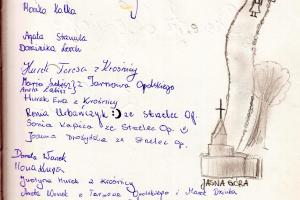 Monika Kalka
Agata Stramula
Dominika Lerch
Hurek Teresa z Krośnicy
Maria
Aneta z Tarnowa Opolskiego
Hurek Ewa z Krośnicy
Renia Urbańczyk :) ze Strzelec Op.
Sonia Kapica ze Strzelec Op.
Joanna ze Strzelec Op.
Dorota Wanek
Justyna Hurek z Krośnicy
Aneta Wanek z Tarnowa Opolskiego i Marek
JASNA GÓRA